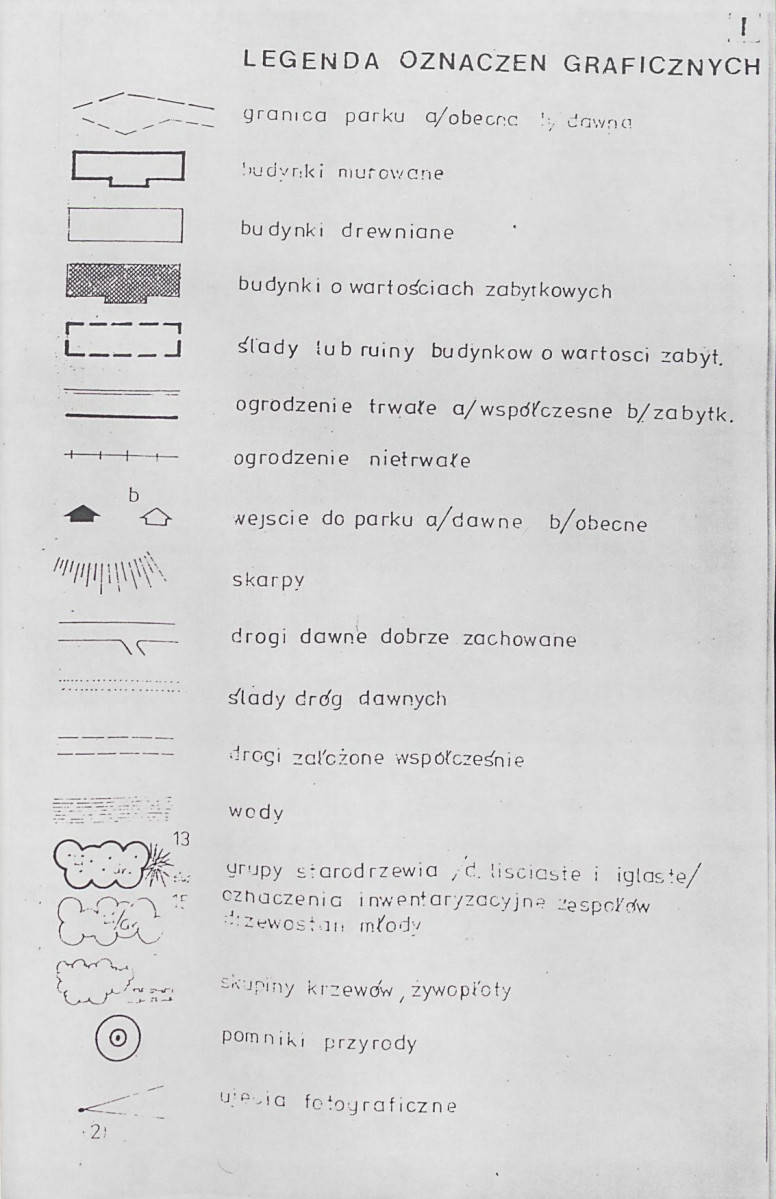 I
LEGENDA OZNACZEN GRAFICZNYCH
granica parku a/obecna b/ dawna
budynki murowane
budynki drewniane
budynki o wartościach zabytkowych
ślady lub ruiny budynkow o wartosci zabyt.
ogrodzenie trwałe a/współczesne b/zabytk.
ogrodzenie nietrwałe
b
wejscie do parku a/dawne b/obecne
skarpy
drogi dawne dobrze zachowane
ślady dróg dawnych
drogi założone współcześnie
wody
13
grupy starodrzewia /d. lisciaste i iglaste/
15
oznaczenia inwentaryzacyjne zespołów
drzewostan młody
skupiny krzewów, żywopłoty
pomniki przyrody
ujęcia fotograficzne
21